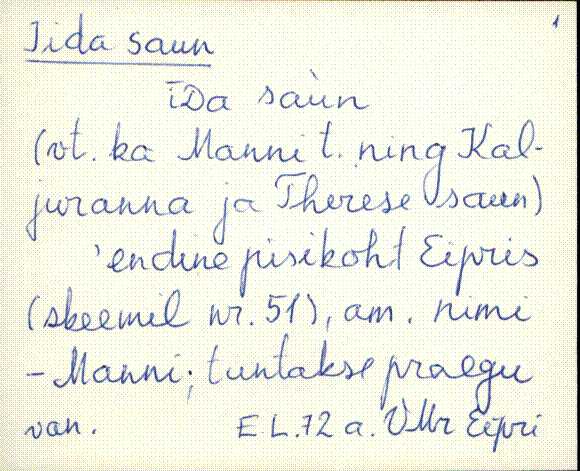 1
Iida saun
īDa saùn
(vt. ka Manni t. ning Kal-
juranna ja Therese saun)
'endine pisikoht Eipris
(skeemil nr. 51), am. nimi
– Manni; tuntakse praegu
van. E.L.72 a. VMr Eipri